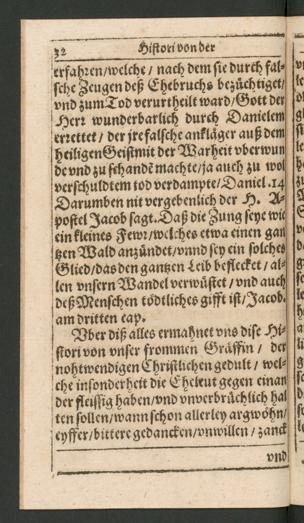 32 Histori von der
erfahren/welche / nach dem sie durch fal-
sche Zeugen deß Ehebruchs bezüchtiget/
vnd zum Tod verurtheilt ward/Gott der
Herr wunderbarlich durch Danielem
errettet / der jre falsche ankläger auß dem
heiligen Geist mit der Warheit vberwun
de vnd zu schandē machte/ja auch zu wol
verschuldtem tod verdampte/Daniel.14
Darumben nit vergebenlich der H. A-
postel Jacob sagt. Daß die Zung seye wie
ein kleines Fewr/welches etwa einen gan
tzen Wald anzündet/vnnd sey ein solches
Glied/das den gantzen Leib beflecket / al-
len vnsern Wandel verwüstet / vnd auch
deß Menschen tödtliches gifft ist/Jacob.
am dritten cap.
Vber diß alles ermahnet vns dise Hi-
stori von vnser frommen Gräffin / der
nohtwendigen Christlichen gedult / wel-
che insonderheit die Eheleut gegen einan
der fleissig haben/vnd vnverbrüchlich hal
ten sollen/wann schon allerley argwöhn/
eyffer/bittere gedancken/vnwillen / zanck
vnd